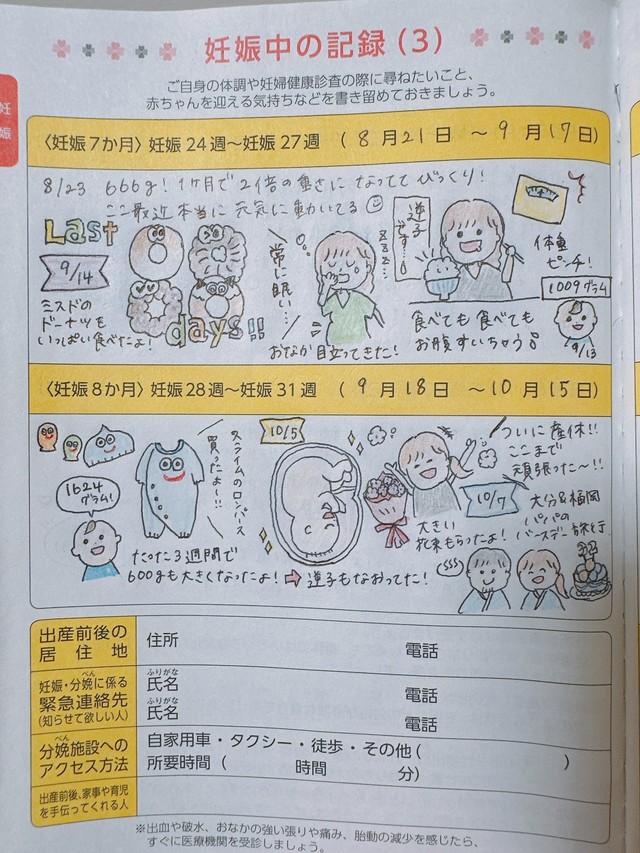 妊娠中の記録(3)
ご自身の体調や妊婦健康診査の際に尋ねたいこと、
赤ちゃんを迎える気持ちなどを書き留めておきましょう。
妊
娠
〈妊娠7か月〉妊娠24週～妊娠27週 (8月21日 ～9月17日)
8/23 666g! 1ヶ月で2倍の重さになっててびっくり!
ここ最近本当に元気に動いてる
Last
days!!
9/14
ミスドの
ドーナツを
いっぱい食べたよ!
常に眠い…
ZZZZ…
おなか目立ってきた!
逆子
です…
体重
ピンチ!
1009グラム
9/13
食べても食べても
お腹すいちゃう
〈妊娠8か月〉妊娠28週～妊娠31週 (9月18日 ～10月15日)
スライムのロンパース
買ったよ〜!!
1624
グラム!
たった3週間で
600gも大きくなったよ!➡逆子もなおってた!
10/5
ついに産休!!
ここまで
頑張った〜!!
大きい
花束もらったよ!
10/7
大分&福岡
パパの
バースデー旅行
出産前後の
居住地
住所
電話
妊娠・分娩に係る
べん
緊急連絡先
(知らせて欲しい人)
ふりがな
氏名
電話
ふりがな
氏名
電話
べん
分娩施設への
アクセス方法
自家用車・タクシー・徒歩・その他( )
所要時間( 時間 分)
出産前後、家事や育児
を手伝ってくれる人
※出血や破水、おなかの強い張りや痛み、胎動の減少を感じたら、
すぐに医療機関を受診しましょう。